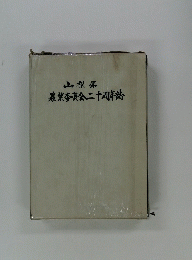 山梨県
農業委員会二十周年誌